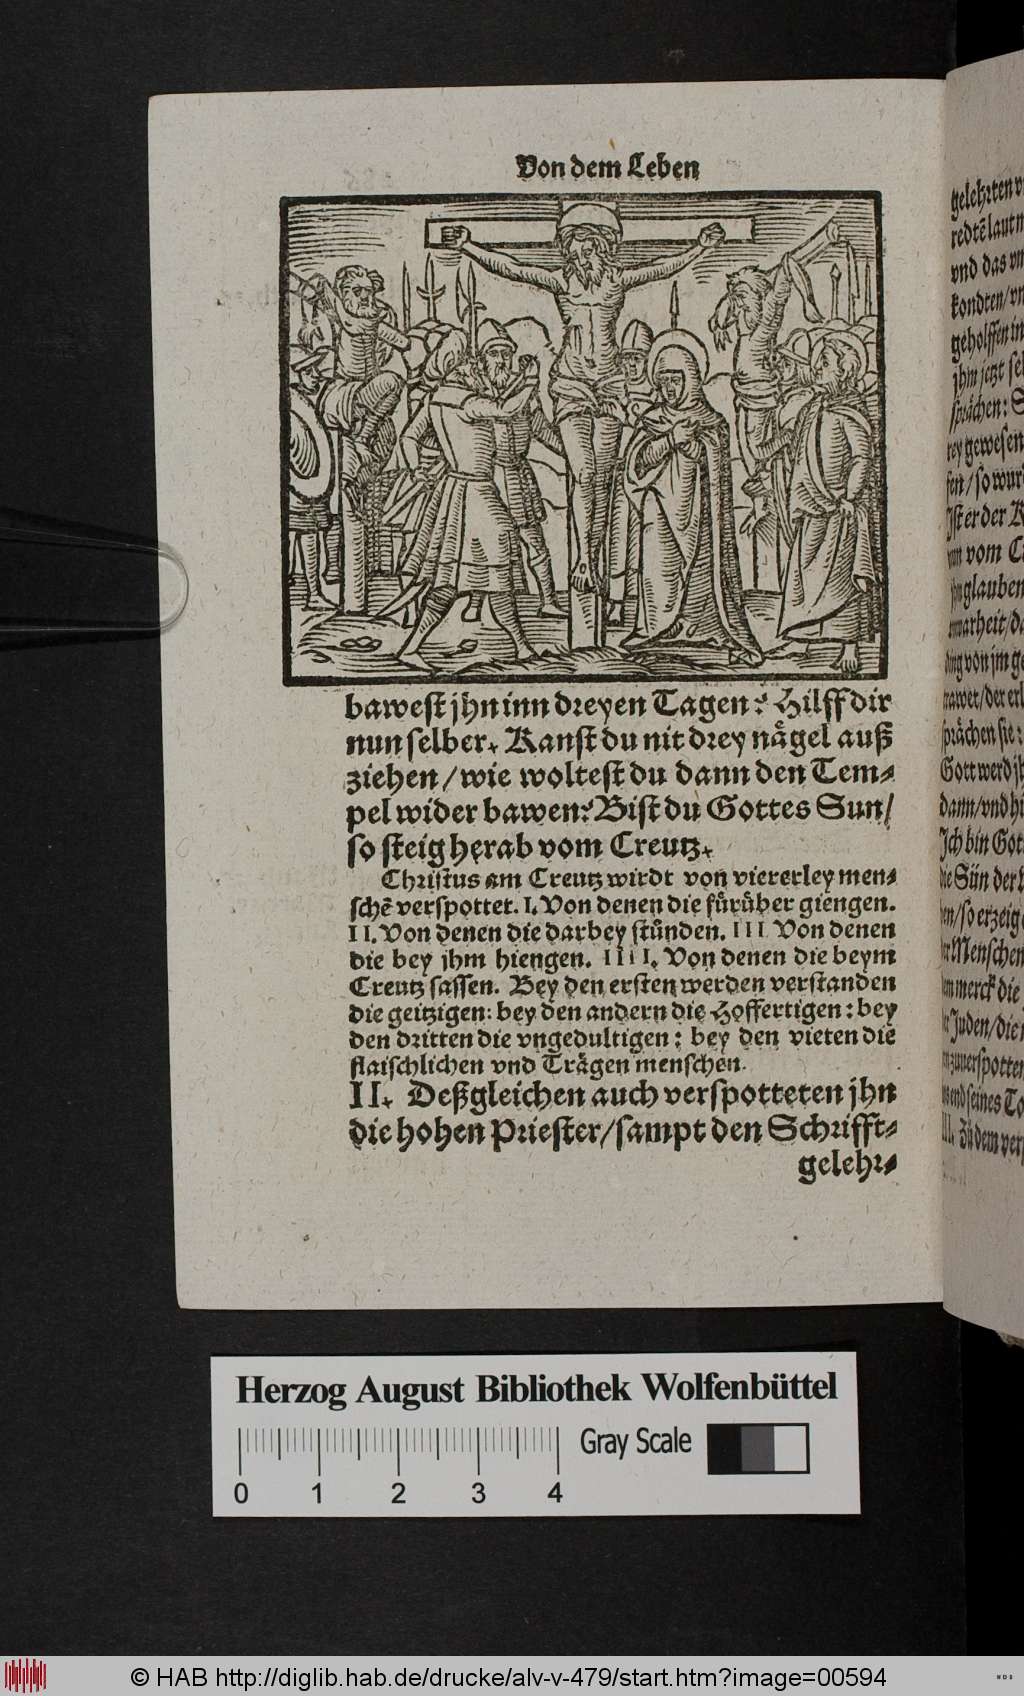 Von dem Leben
bawest jhn inn dreyen Tagen? Hilff dir
nun selber. Kanst du nit drey nägel auß
ziehen / wie woltest du dann den Tem⸗
pel wider bawen? Bist du Gottes Sun /
so steig herab vom Creutz.
Christus am Creutz wirdt von viererley men⸗
schē verspottet. I. Von denen die fürüber giengen.
II. Von denen die darbey stůnden. III Von denen
die bey jhm hiengen. IIII. Von denen die beym
Creutz sassen. Bey den ersten werden verstanden
die geitzigen: bey den andern die Hoffertigen: bey
den dritten die vngedultigen: bey den vieten die
flaischlichen vnd Trägen menschen.
II. Deßgleichen auch verspotteten jhn
die hohen Priester / sampt den Schrifft⸗
gelehr⸗
gelehrten
redtē lautn
vnd das
kondten /
geholffen
jhm jetzt
sprächen:
gewesen
Ist er der
vom
glauben
von jm
sprächen sie:
Gott werd
dann / vnd
Ich bin Got
die Sün der
so erzeig
Menschen
merck die
Juden / die
seines
III. Zů dem
Herzog August Bibliothek Wolfenbüttel
Gray Scale
0 1 2 3 4
© HAB http://diglib.hab.de/drucke/alv-v-479/start.htm?image=00594